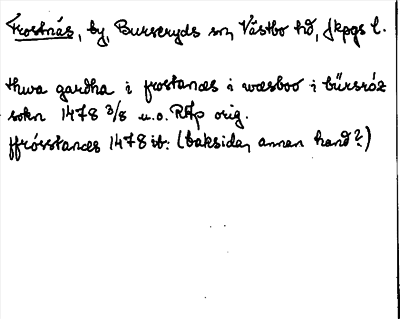 Frostnäs, by, Burseryds sn, Västbo hd, Jkpgs l.
thwa gardha i frostanæs i wæsboo i bürsröz
sokn 1478 3/8 u.o. RAp orig.
ffrösstanæs 1478 ib. (baksida, annan hand?)